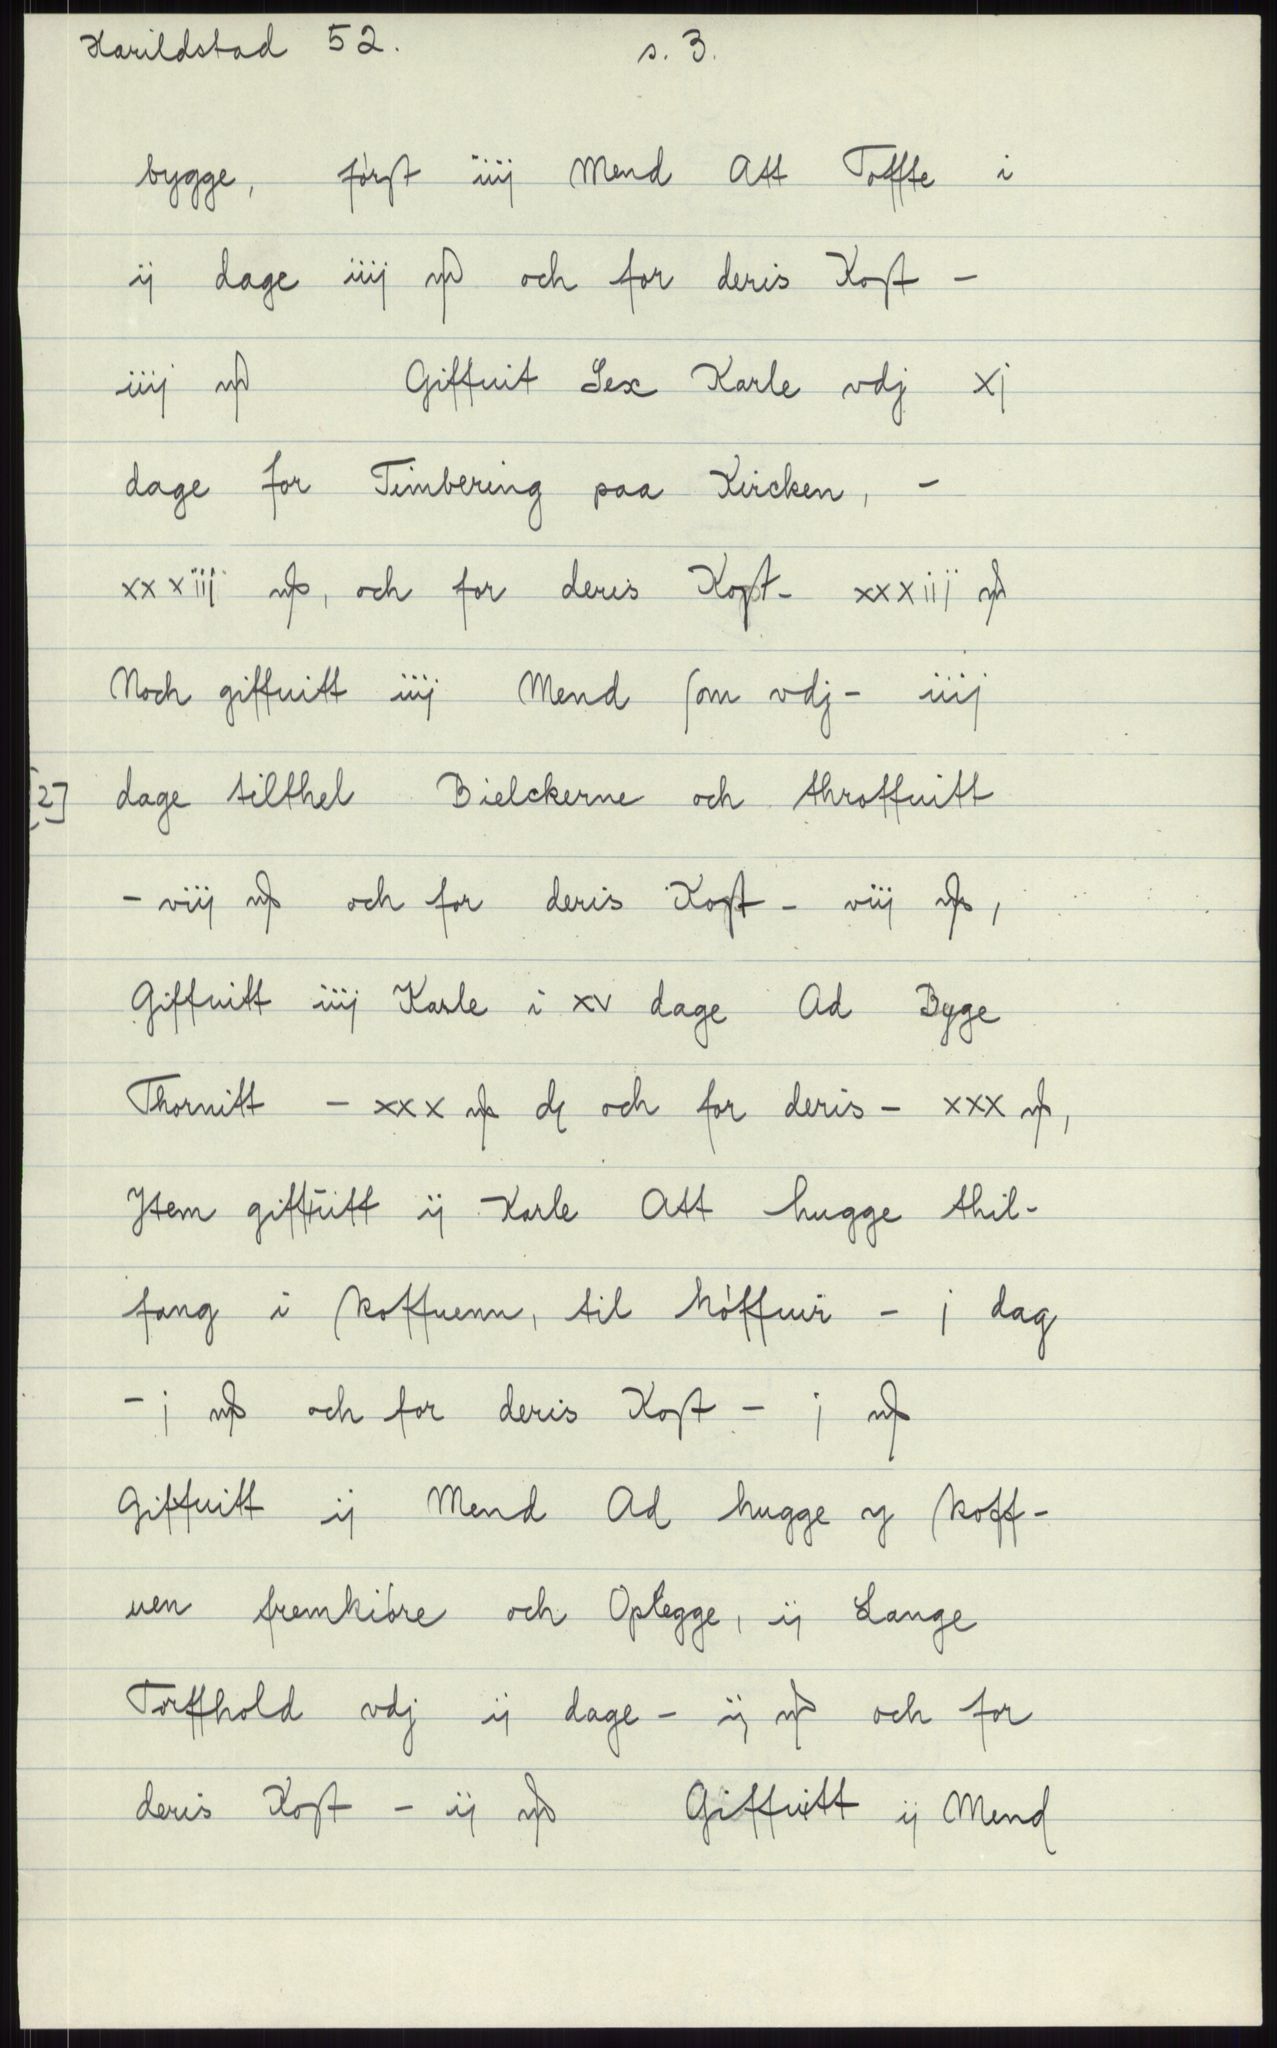 Harildstad 52. s. 3.
bygge, først iiij Mend Att Toffte i
ij dage iiij mk och for deris Kost -
iiij mk Giffuit Sex Karle vdj xj
dage for Timbering paa Kircken, -
xxxiij mk, och for deris Kost - xxxiij mk
Noch giffuitt iiij Mend som vdj - iiij
[2] dage tilthel Bielckerne och throffuitt
- viij mk och for deris Kost - viij mk,
Giffuitt iiij Karle i xv dage Ad Byge
Thornitt - xxx mk och for deris - xxx mk,
Jtem giffuitt ij Karle Att hugge thil-
fang i skoffuenn, til høffuir - j dag
- j mk och for deris Kost - j mk
Giffuitt ij Mend Ad hugge y skoff-
uen fremkiøre och Oplegge, ij Lange
Torffhold vdj ij dage - ij mk och for
deris Kost - ij mk Giffuitt ij Mend